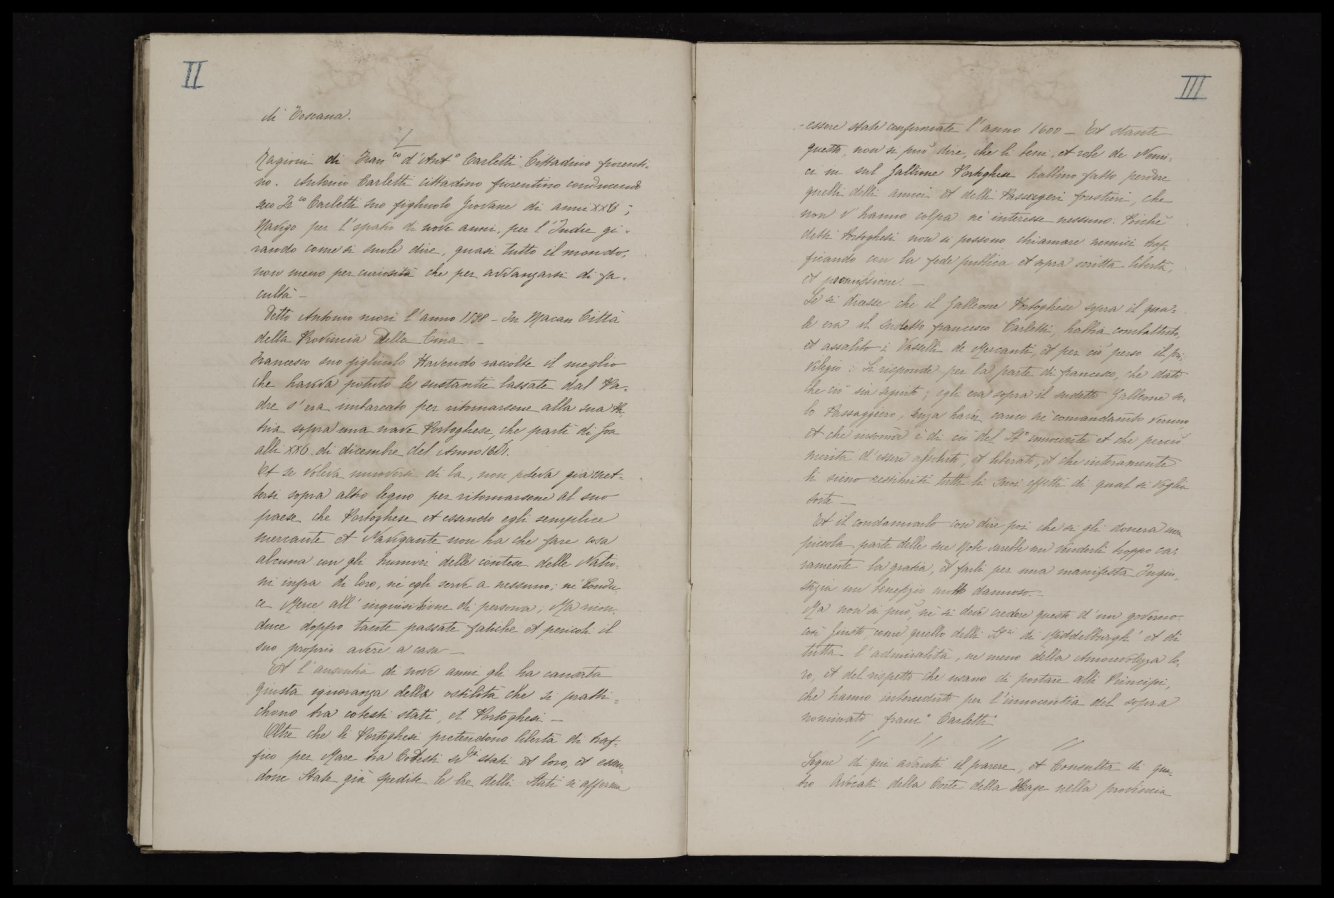 II
di Toscana.
Ragioni di Fran.co d'Ant.o Carletti Cittadino fiorenti-
no. Antonio Carletti cittadino fiorentino conducendo
seco Fr.co Carletti suo figliuolo giovane di anni XXVI;
Navigò per l'spatio di nove anni, per l'Indie gi-
rando come si suole dire, quasi tutto il mondo,
non meno per curiosità che per avvanzarsi di fa-
cultà -
Detto Antonio morì l'anno 1598 - In Macan Città
della Provincia Della Cina -
Francesco suo figliuolo Havendo raccolte il meglio
che haveva potuto le sustantie lassate dal Pa-
dre s'era imbarcato per ritornarsene alla sua Pa-
tria sopra una nave Portoghese, che partì di Goa
alli XXV di dicembre del Anno 1601.
Et se voleva muoversi di la, non poteva già met-
tersi sopra altro legno per ritornarsene al suo
paese che Portoghese et essendo egli semplice
mercante et Navigante non ha che fare cosa
alcuna con gli humori della contese delle Natio-
ni infra di loro, nè egli serve a nessuno; nè Condu-
ce Mene all'inquisitione di persona, Ma ricon-
duce doppo tante passate fatiche et pericoli il
suo proprio avere a casa -
Et l'ausentia di nove anni gli ha causata
giusta ignoranza della ostilità che si pratti-
chono tra cotesti stati, et Portoghesi -
Oltre che li Portoghesi pretendono libertà di traf-
fico per Mare tra Codesti stati et loro, et essen-
done State già spedite le tre delli Stati si afferma
III
essere state confermate l'anno 1600 - Et stante
questo, non si può dire, che li beni, et robe de Nemi-
ci in sul Gallione Portoghese habbino fatto perdere
quelle delli amici et delli Passeggeri forestieri, che
non v'hanno colpa nè interesse nessuno. Perchè
detti Portoghesi non si possono chiamare nemici traf-
ficando con la fede publica et sopra scritta libertà,
et permissione. -
Se si dicesse che il Gallione Portoghese sopra il qua-
le era il sudetto francesco Carletti, habbia combattuto,
et assalito i Vasselli de Mercanti, et per ciò perso il pri-
vilegio: Si risponde per la parte di francesco, che dato
che ciò sia seguito; egli era sopra il sudetto Gallione so-
lo Passaggiero, senza havere carico nè comandamento veruno
et che insomma è di ciò del tt.o innocente et che perciò
merita d'essere assoluto, et liberato, et che interamente
li sieno restituiti tutti li suoi effetti di qual si voglia
sorte -
Et il condannarlo con dire poi che se gli donerà una
piccola parte delle sue robe sarebbe un venderli troppo ca-
ramente la gratia, et farli per una manifesta Ingiu-
stizia un benefizio molto dannoso. -
Ma non si può, nè si deve credere questo d'un governo
così giusto come quello delli S.ri di Middelburgh et di
tutta l'admiralità, ne meno della Amorevolezza lo-
ro, et del rispetto che usano di portare alli Principi,
che hanno interceduto per l'innocentia del sopra
nominato fran.co Carletti.
// // // //
Segue di qui avanti il parere, et Consulta di qua-
tro Avocati della Corte della Haye nella provincia